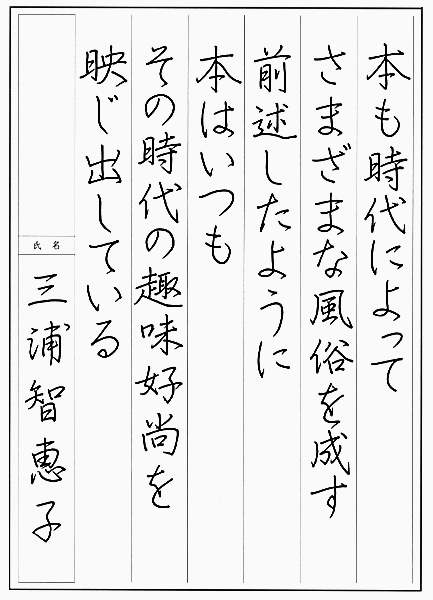 本も時代によって
さまざまな風俗を成す
前述したように
本はいつも
その時代の趣味好尚を
映じ出している
氏名
三浦智恵子